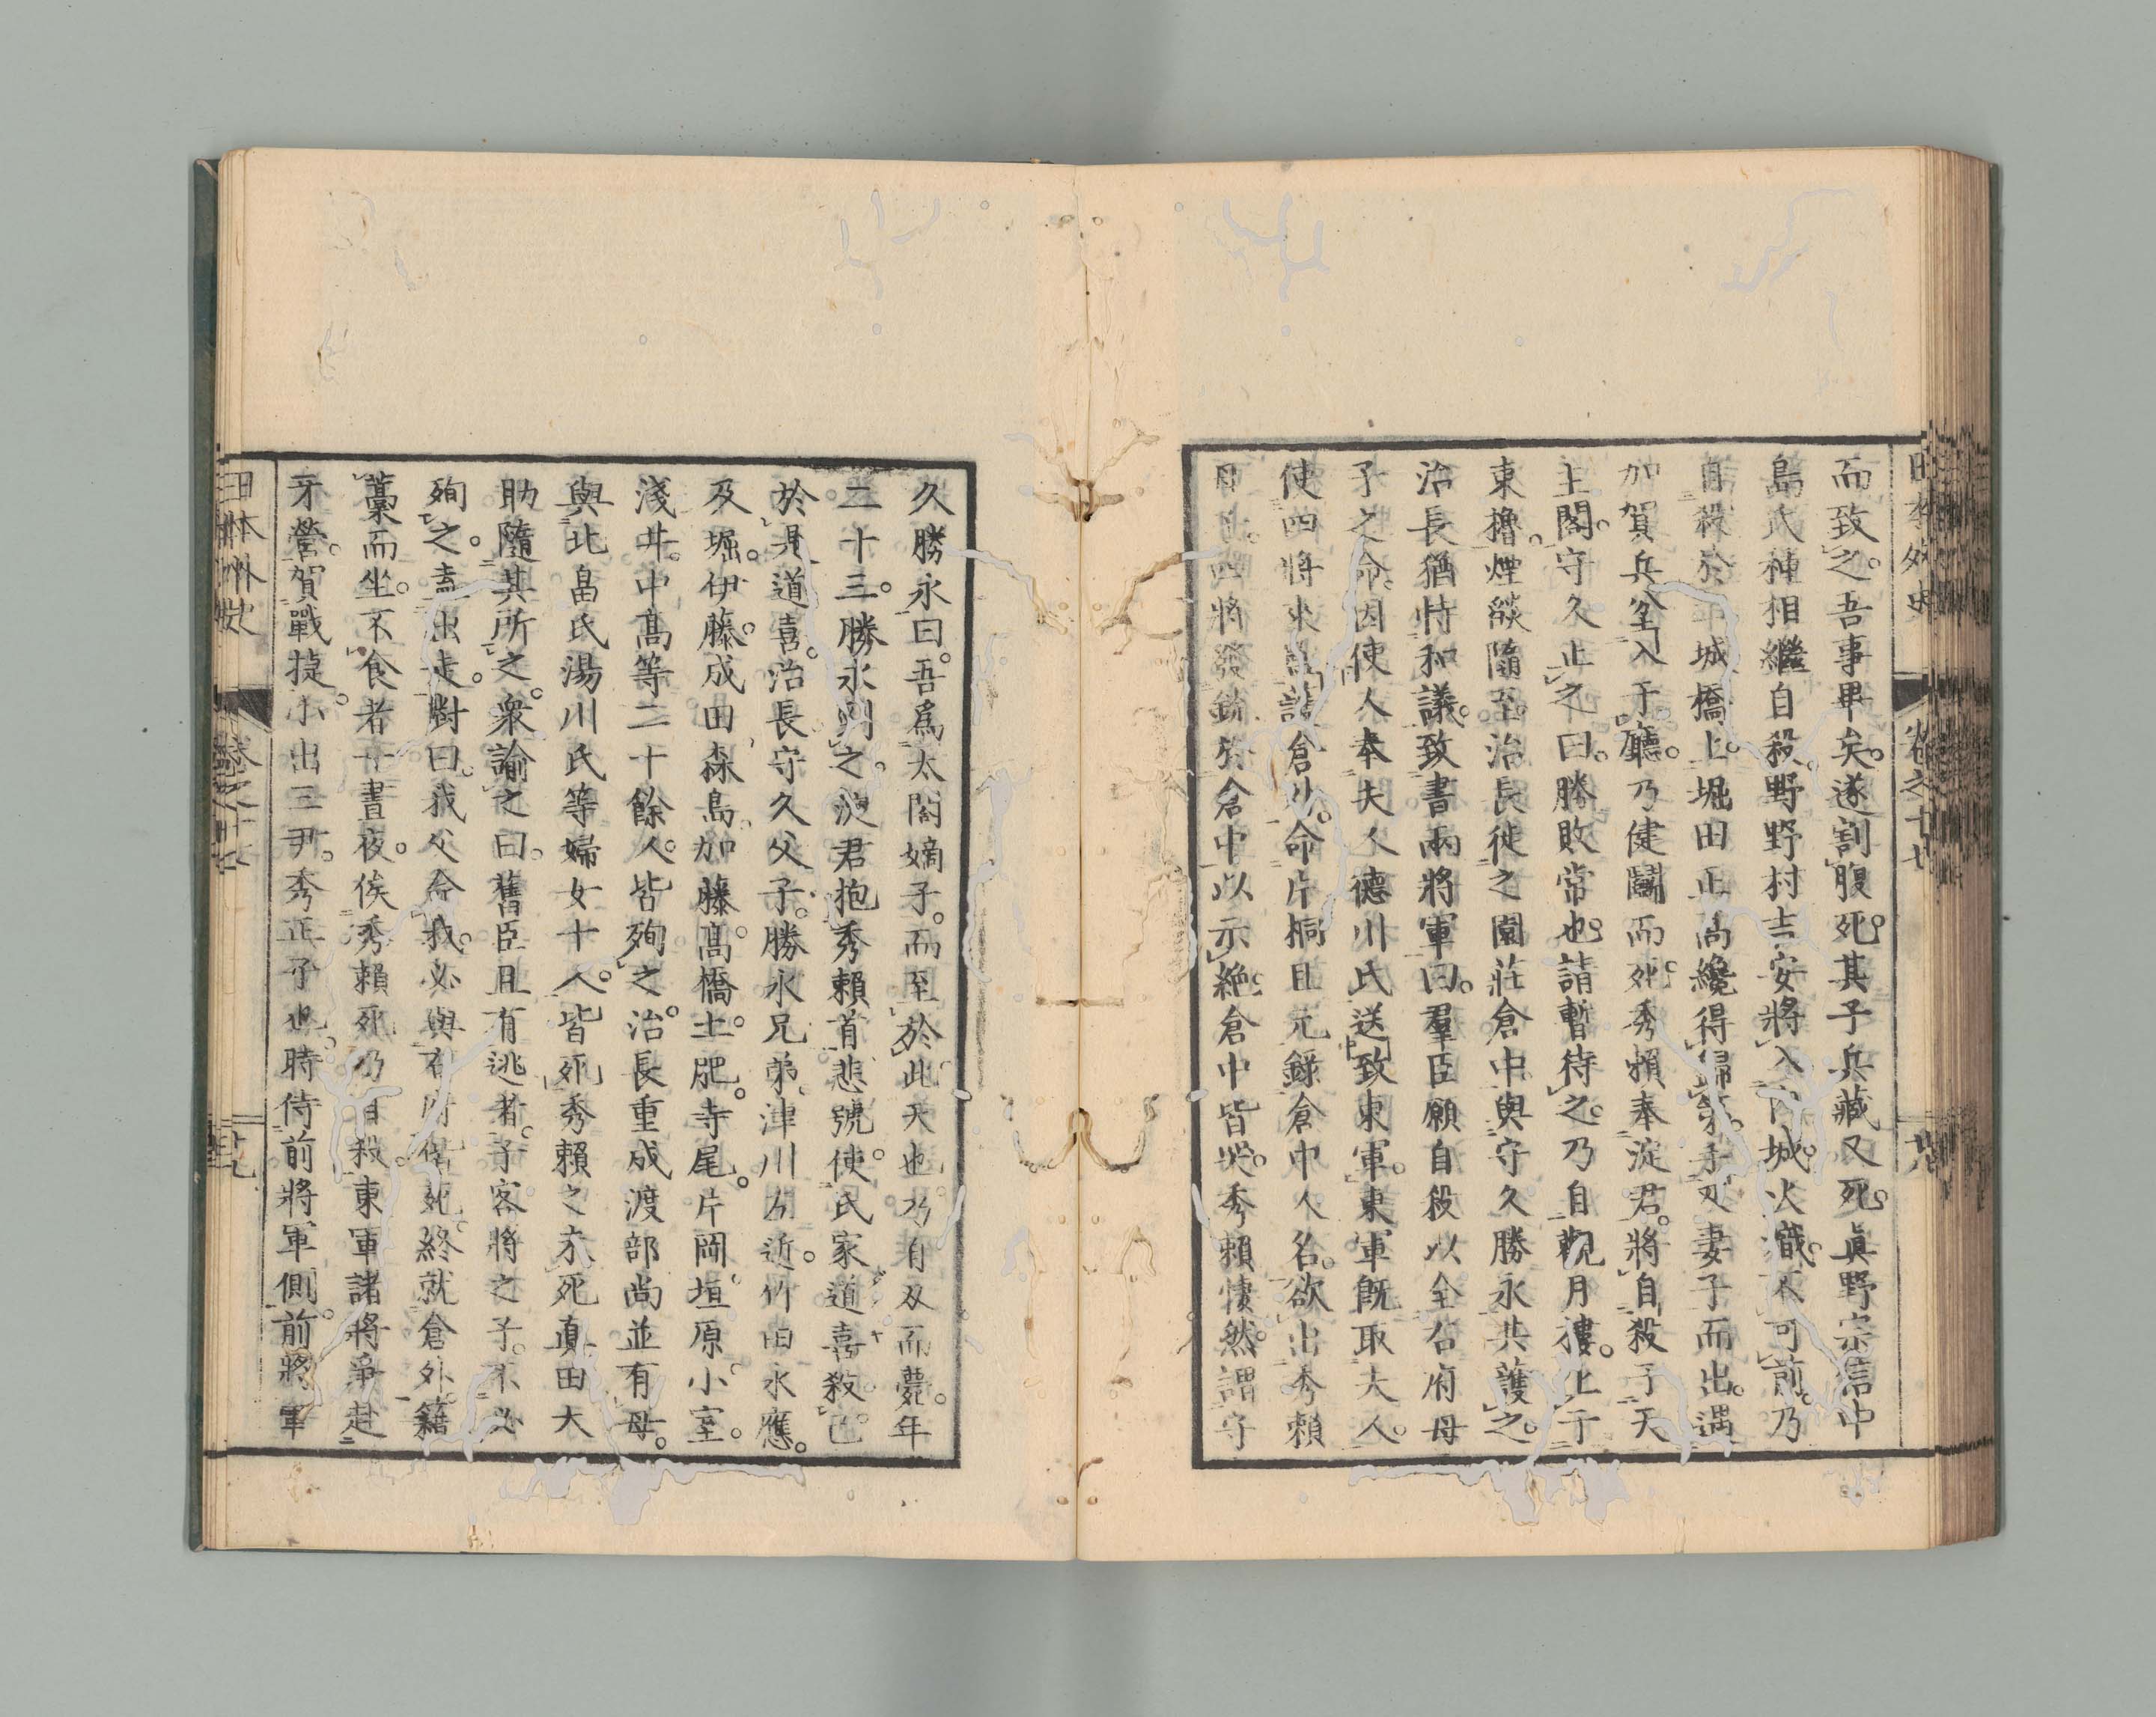 日本外史 卷之十七 廿八
而致之。吾事畢矣。遂割腹死。其子兵藏又死。眞野宗信中
島氏種相繼自殺。野野村吉安將入內城。火熾不可前。乃
自殺於城橋上。堀田正高纔得歸第。手刃妻子而出。遇
加賀兵坌入于廳。乃健鬭而死。秀賴奉淀君。將自殺于天
主閣。守久止之曰。勝敗常也。請暫待之。乃自觀月樓。上于
東櫓。煙燄隨至。治長徙之園莊倉中。與守久勝永共護之。
治長猶恃和議。致書兩將軍曰。羣臣願自殺以全右府母
子之命。因使人奉夫人德川氏送致東軍。東軍旣取夫人。
使四將來倉外。命片桐且元錄倉中人名。欲出秀賴
四將發銃於倉中以示絕。倉中皆哭。秀賴悽然。謂守
久勝永曰。吾爲太閤嫡子。而至於此天也。乃自刃而薨。年
二十三。勝永刎之。淀君抱秀賴首悲號。使氏家道喜殺己
於是道喜治長守久父子。勝永兄弟。津川左近。竹田永應。
及堀。伊藤。成田。森島。加藤。高橋。土肥。寺尾。片岡。垣原。小室。
淺井。中高等二十餘人。皆殉之。治長重成渡部尚並有母。
與北畠氏湯川氏等婦女十人。皆死。秀賴之未死眞田大
助隨其所之。衆諭之曰。舊臣且有逃者。子客將之子。不必
殉之。盍出走。對曰。我父命我。必與右府偕死。終就倉外。藉
藁而坐。不食者一晝夜。俟秀賴死。乃自殺。東軍諸將爭赴
牙營。賀戰捷。小出三尹。秀正子也。時侍前將軍側。前將軍
日本外史 卷之十七 廿九